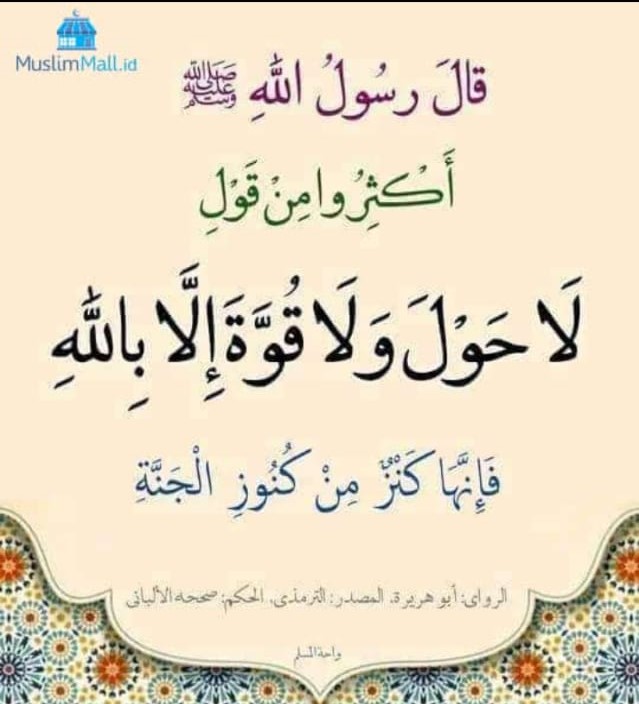 MuslimMall.id
قَالَ رَسُولُ اللَّهِ ﷺ
أَكْثِرُوا مِنْ قَوْلِ
لَا حَوْلَ وَلَا قُوَّةَ إِلَّا بِاللَّهِ
فَإِنَّهَا كَنْزٌ مِنْ كُنُوزِ الْجَنَّةِ
الرواى: أبو هريرة، المصدر: الترمذى، الحكم: صححه الألبانى
واحة المسلم